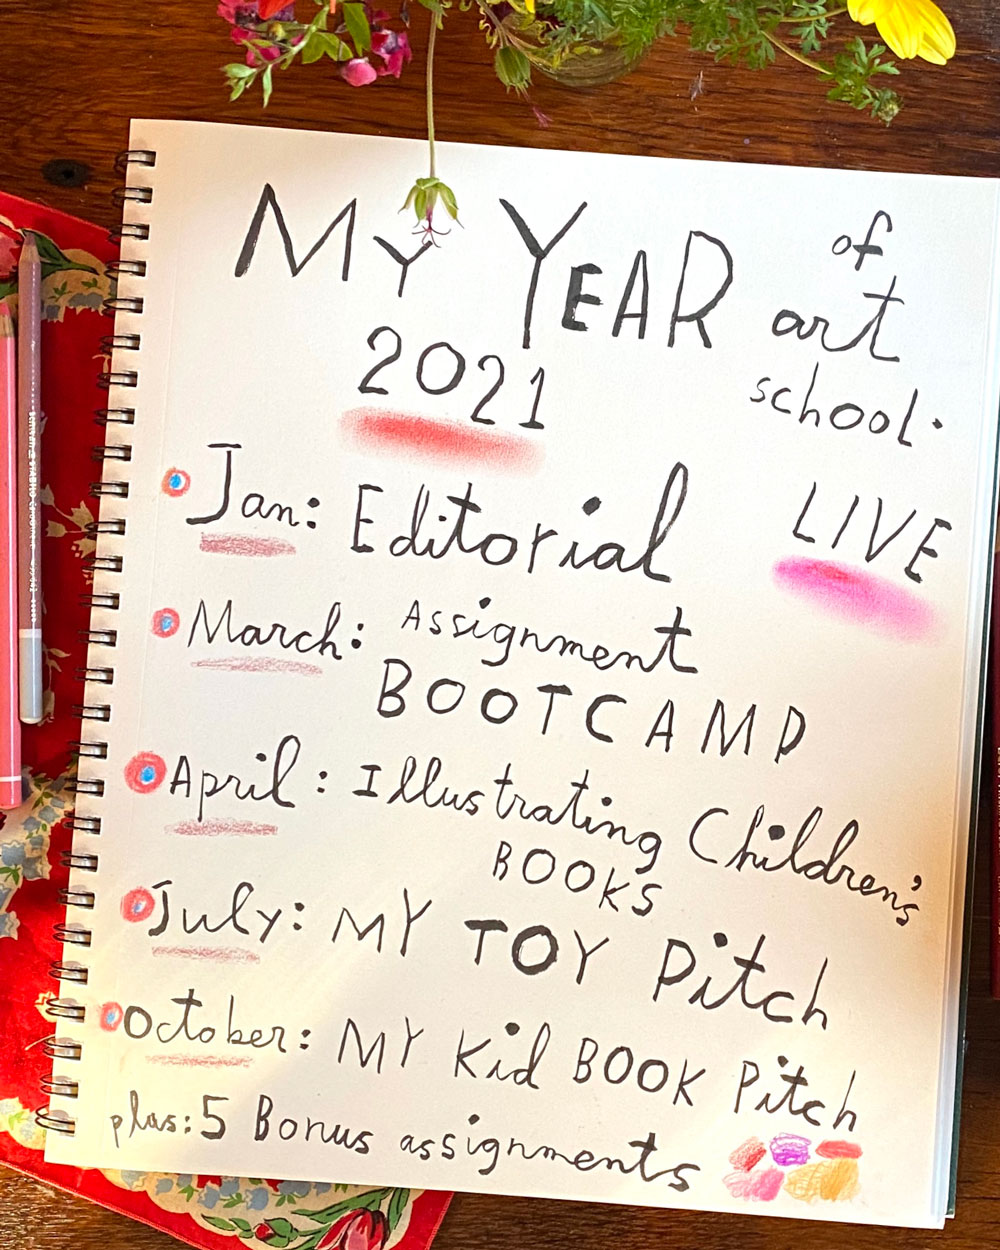 My YEAR of art school.
2021
LIVE
Jan: Editorial
March: Assignment
BOOTCAMP
April: Illustrating Children's
BOOKS
July: MY TOY Pitch
October: MY Kid BOOK Pitch
plus: 5 Bonus assignments